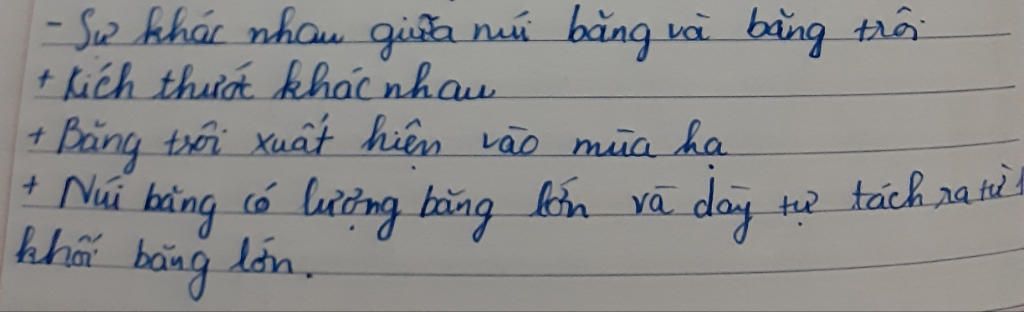 - Sự khác nhau giữa núi băng và băng trôi
+ Kích thướt khác nhau
+ Băng trôi xuất hiện vào mùa hạ
+ Núi băng có lượng băng lớn và dày tự tách ra từ
khối băng lớn.